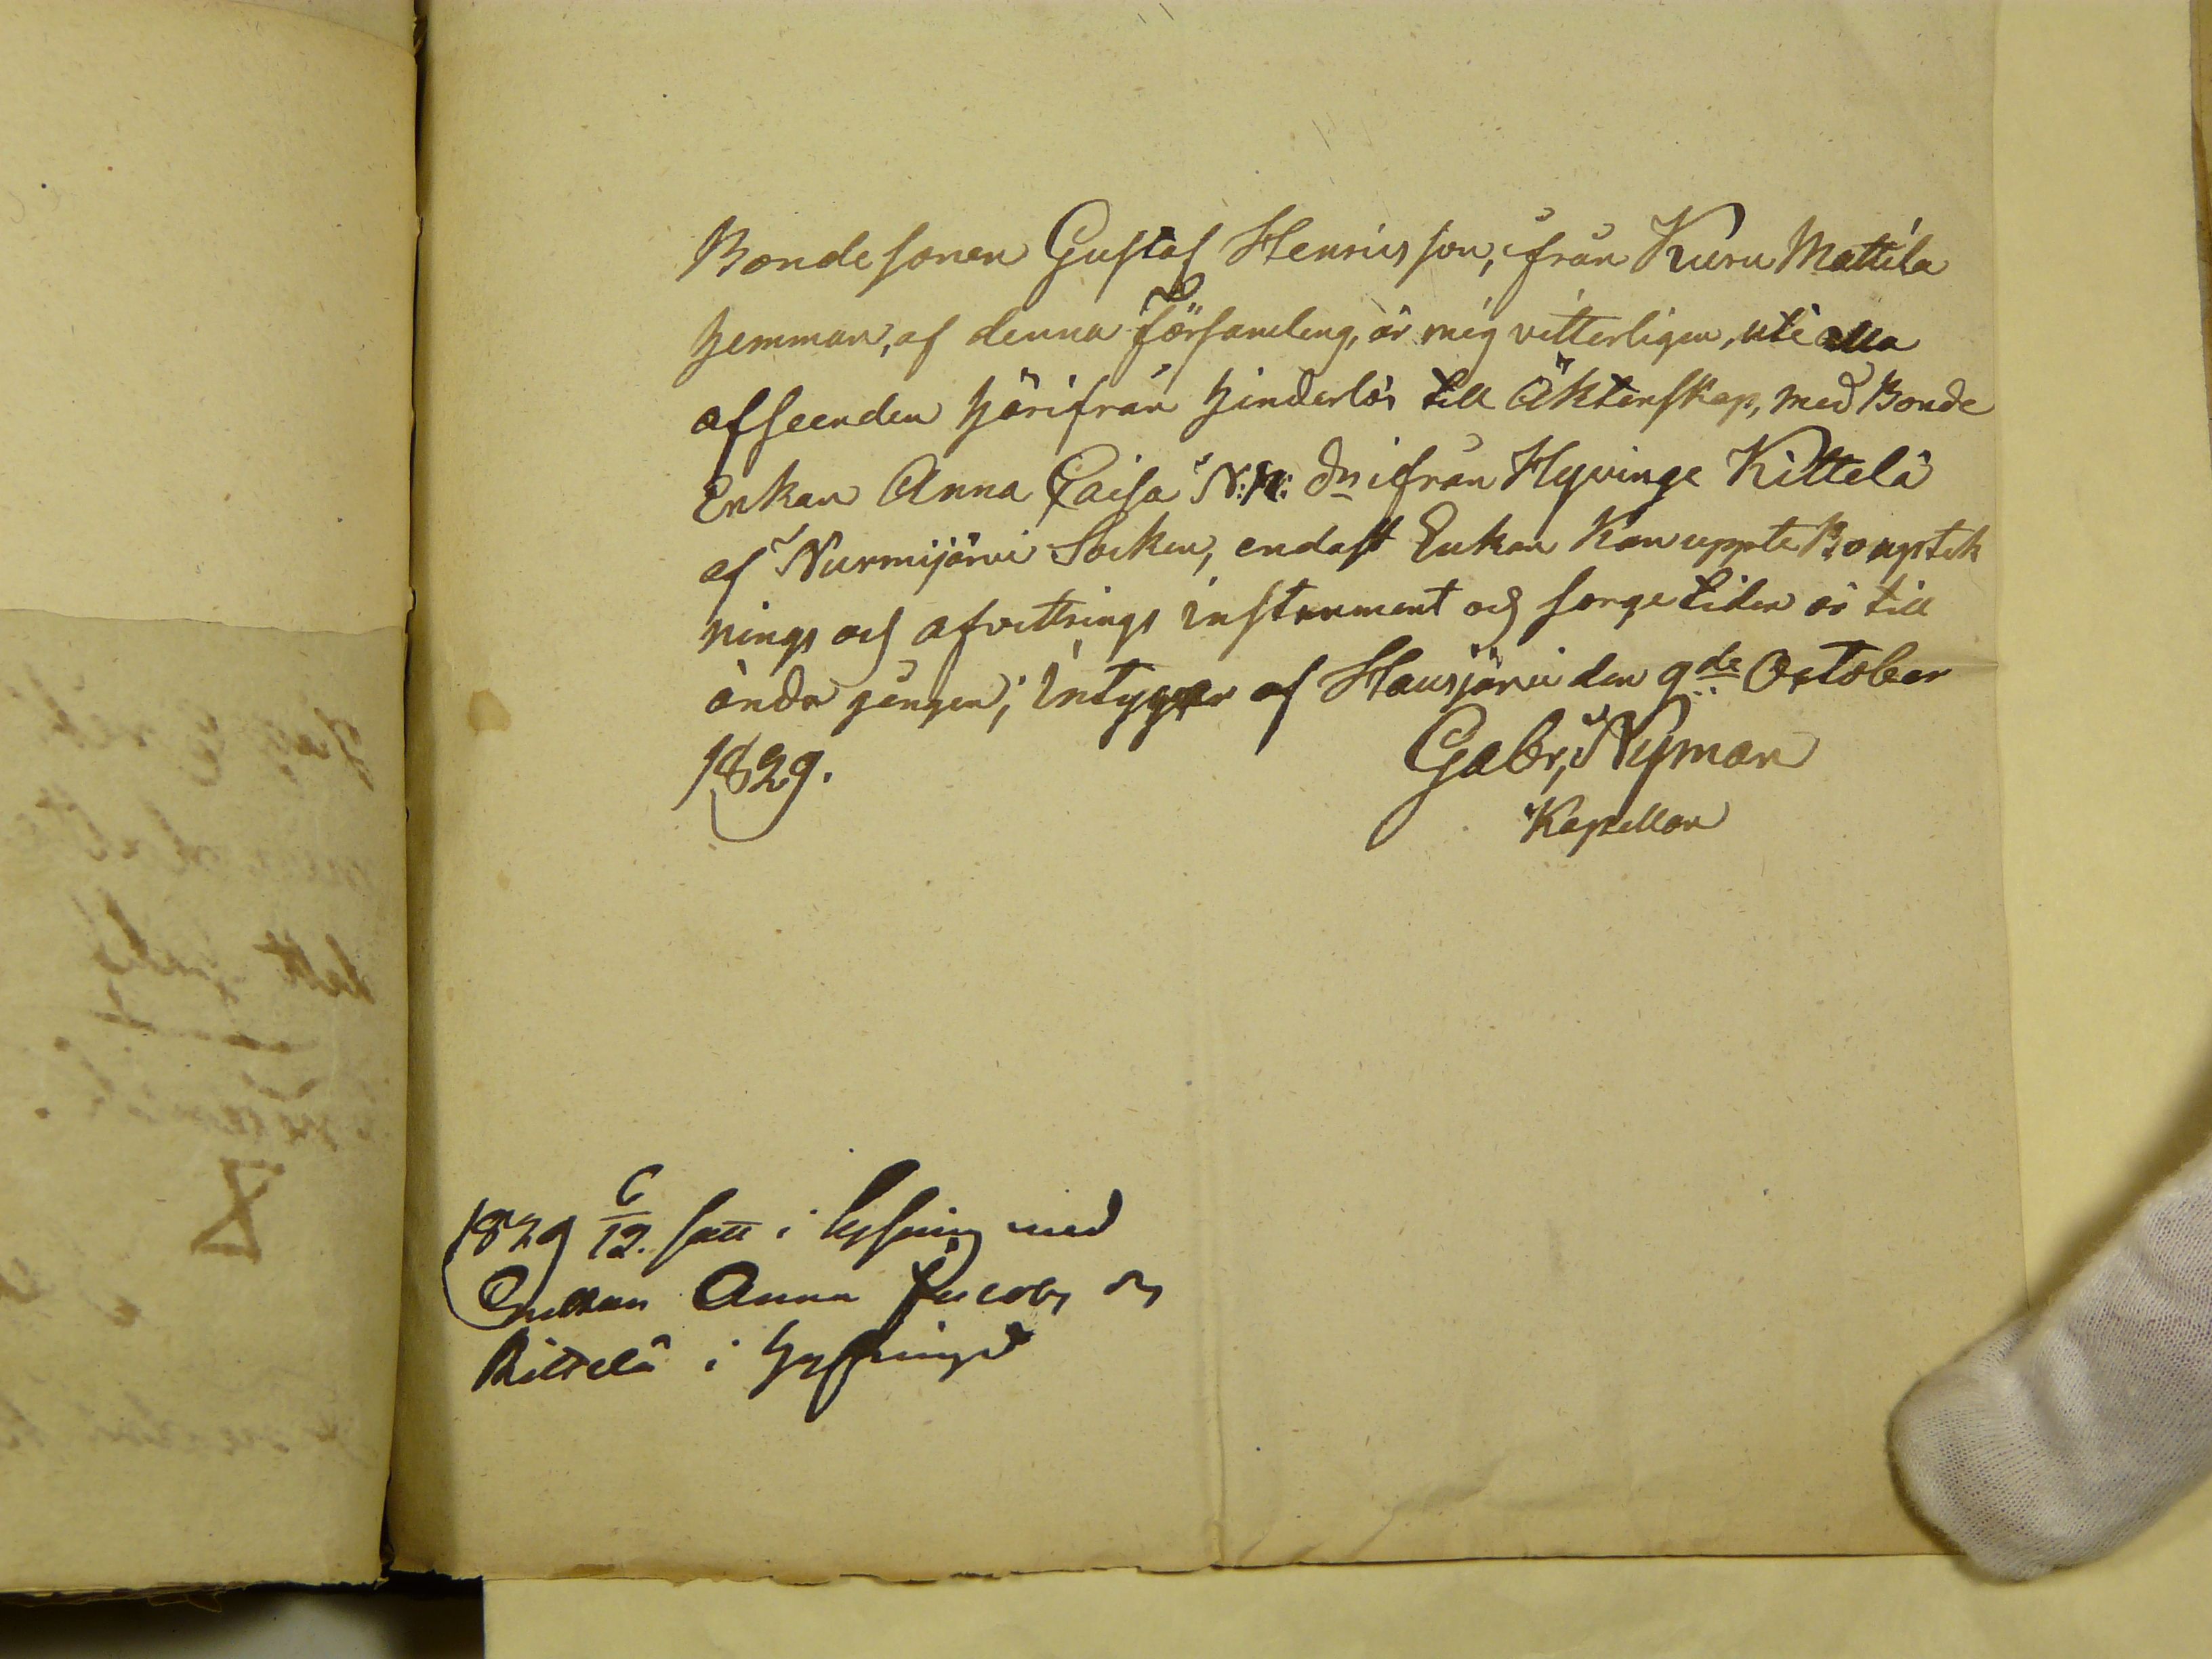 Bondesonen Gustaf Henricsson, ifrån Kuru Mattila
hemman, af denna Församling, är mig vitterligen, uti alla
afseenden härifrån hinderlös till Äktenskap, med Bonde
Enkan Anna Caisa N:N: dr ifrån Hyvinge Kittelä
af Nurmijärvi Socken, endast Enkan Kan uppte Bouptek
nings och afvittrings instrument och sorgetiden är till
ända gången; intygar af Hausjärvi den 9de October
1829.
Gabr, Nyman
Kapellan
1829 12. satt i lysning med
Enkan Anna Jacobs dr
Kittelä i